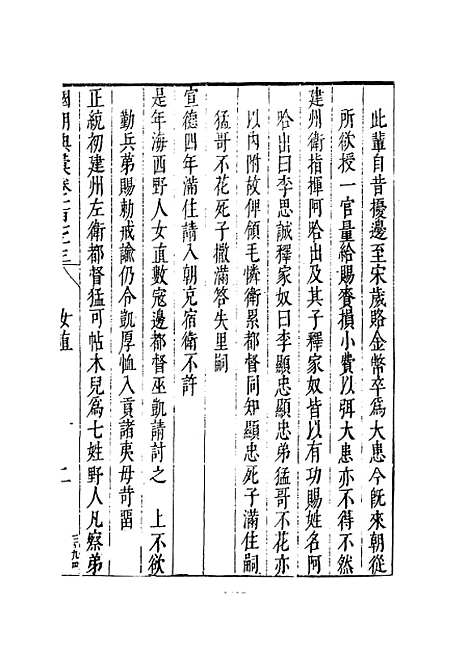 此輩自昔擾邊至宋歲賂金幣卒爲大患今旣來朝從
所欲授一官量給賜賚捐小費以弭大患亦不得不然
建州衛指揮阿哈出及其子釋家奴皆以有功賜姓名阿
哈出曰李思誠釋家奴曰李顯忠顯忠弟猛哥不花亦
以內附故俾領毛憐衛累都督同知顯忠死子滿住嗣
猛哥不花死子撒滿答失里嗣
宣德四年滿住請入朝充宿衛不許
是年海西野人女直數寇邊都督巫凱請討之 上不欲
勤兵第賜勅戒諭仍令凱厚恤入貢諸夷毋苛留
正統初建州左衛都督猛可帖木兒爲七姓野人凡察弟
國朝典彙卷一百七十三 女直 二
三九四